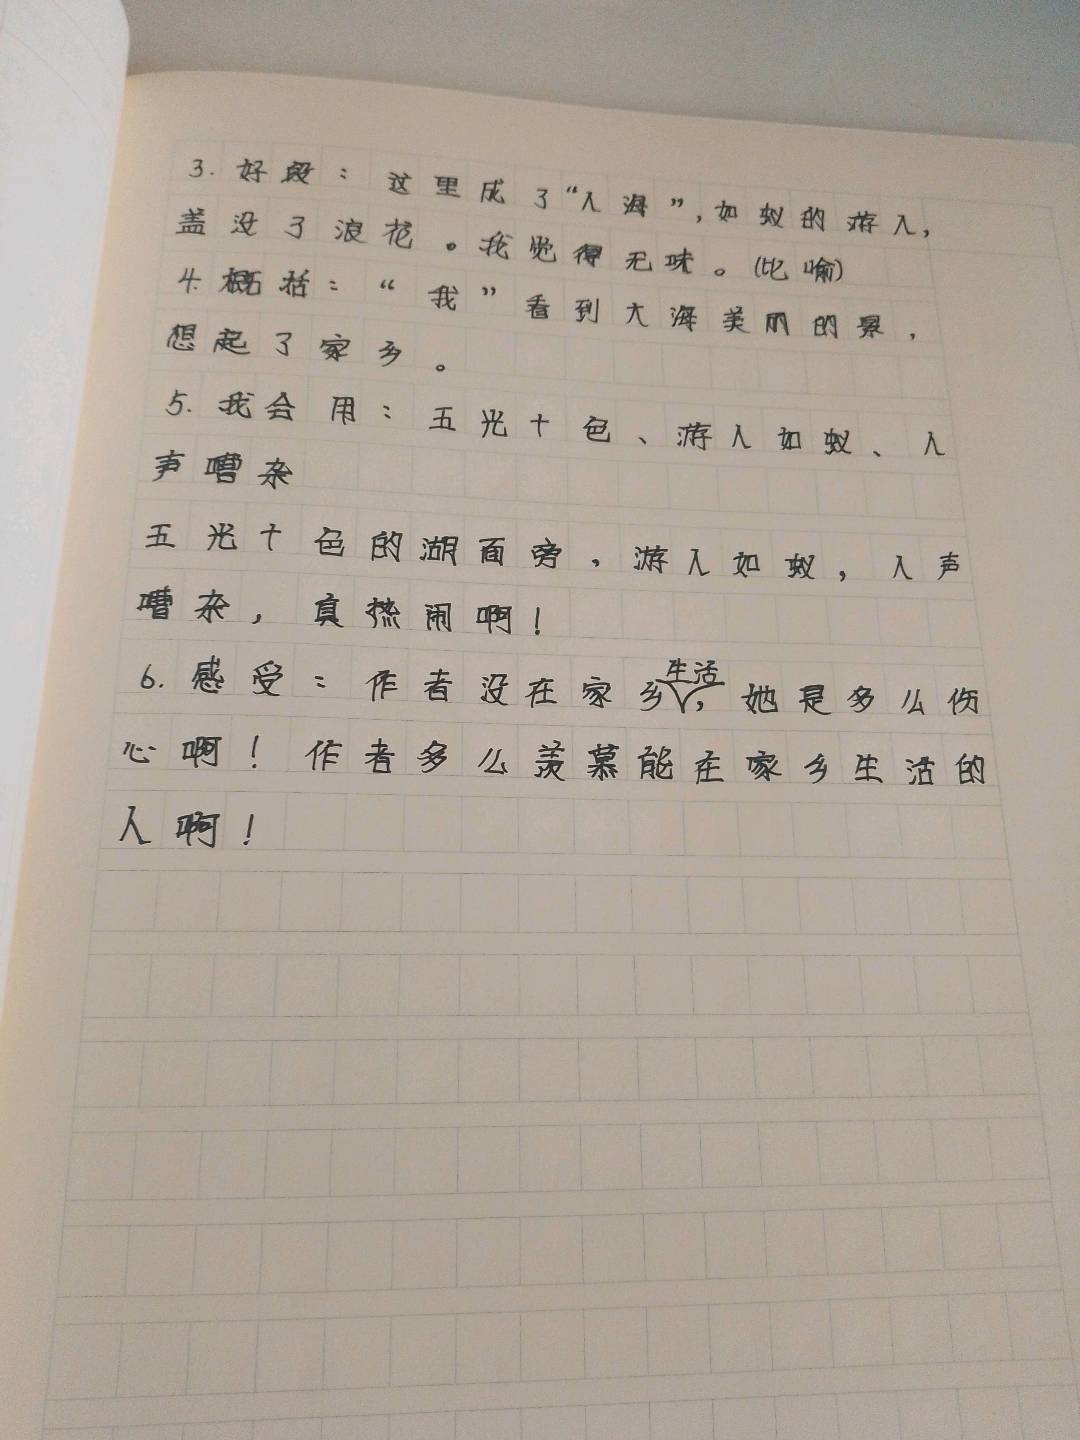 3.好段：这里成了“人海”,如蚁的游人,
盖没了浪花。我觉得无味。(比喻)
4.概括：“我”看到大海美丽的景,
想起了家乡。
5.我会用：五光十色、游人如蚁、人
声嘈杂
五光十色的湖面旁,游人如蚁,人声
嘈杂,真热闹啊!
6.感受：作者没在家乡生活,她是多么伤
心啊!作者多么羡慕能在家乡生活的
人啊!